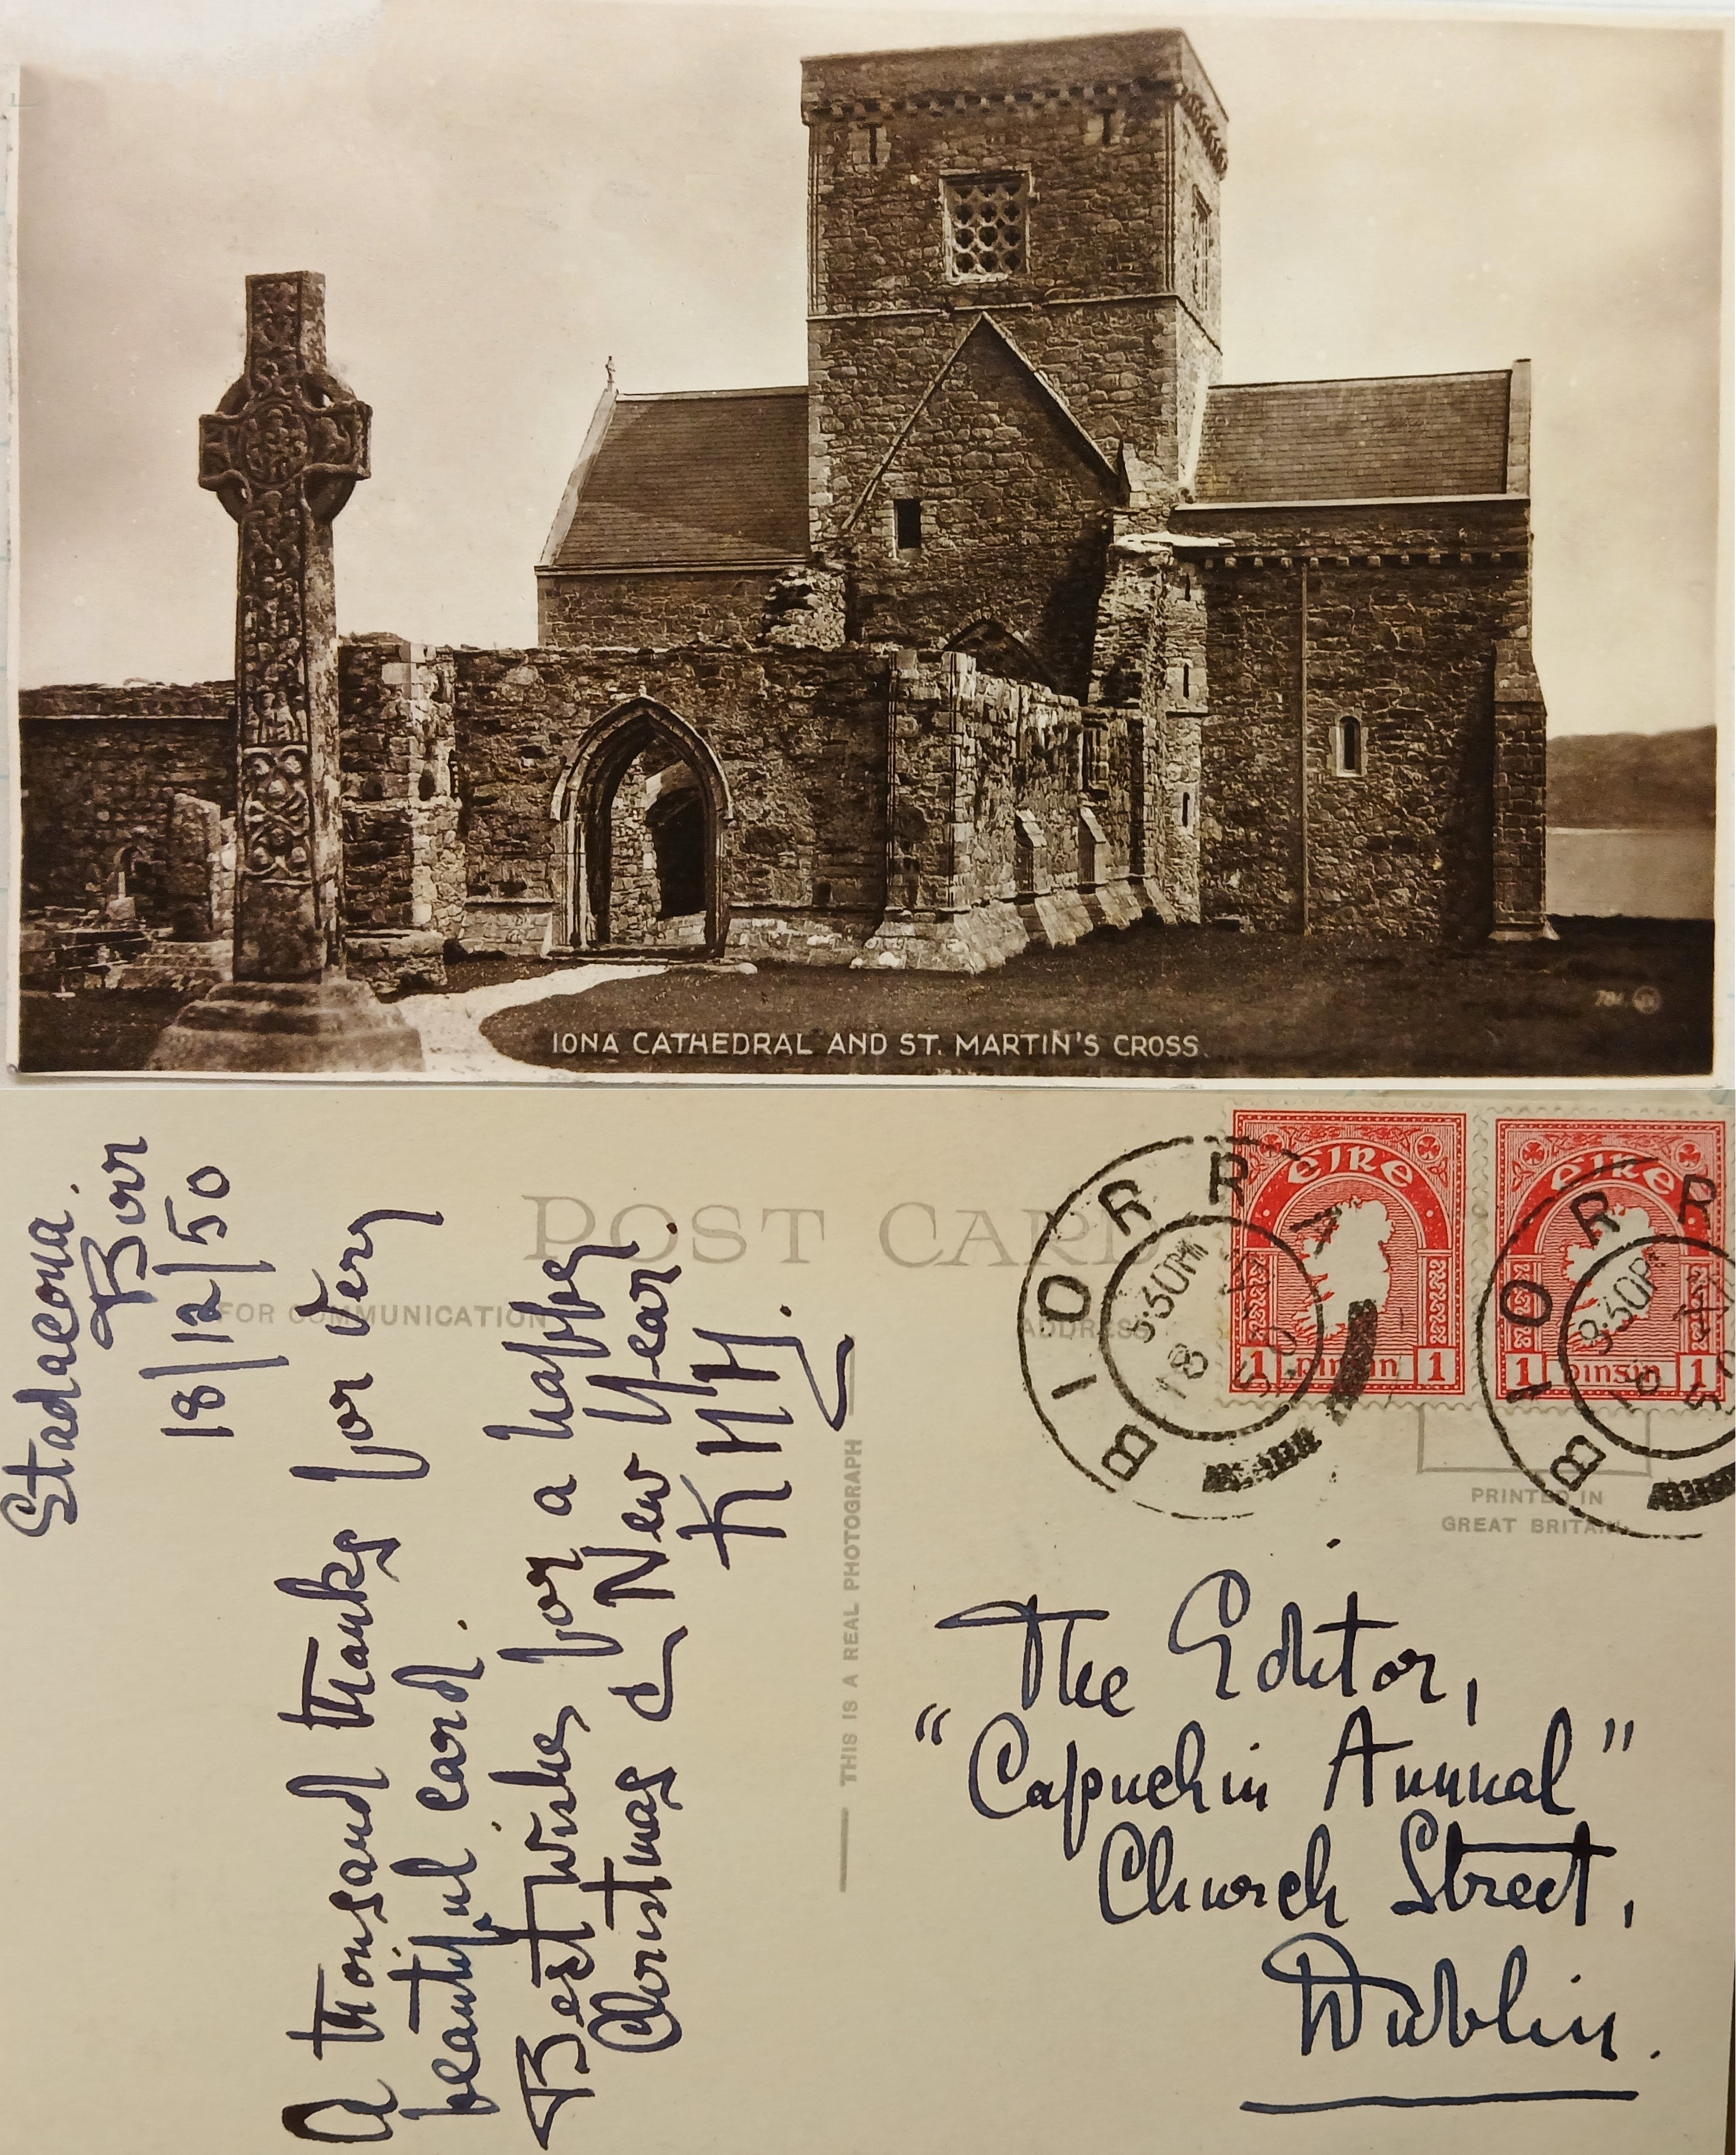 IONA CATHEDRAL AND ST. MARTIN'S CROSS.
POST CARD
FOR COMMUNICATION
ADDRESS
Stadacona.
Birr
18/12/50
A thousand thanks for very
beautiful card.
Best wishes for a happy
Christmas & New Year.
KHH.
THIS IS A REAL PHOTOGRAPH
BIORRA
8:30PM
18
50
ÉIRE
1 pinsin 1
BIORR
8:30P
18
5
ÉIRE
1 pinsin 1
PRINTED IN
GREAT BRITAIN
The Editor,
"Capuchin Annual"
Church Street,
Dublin.